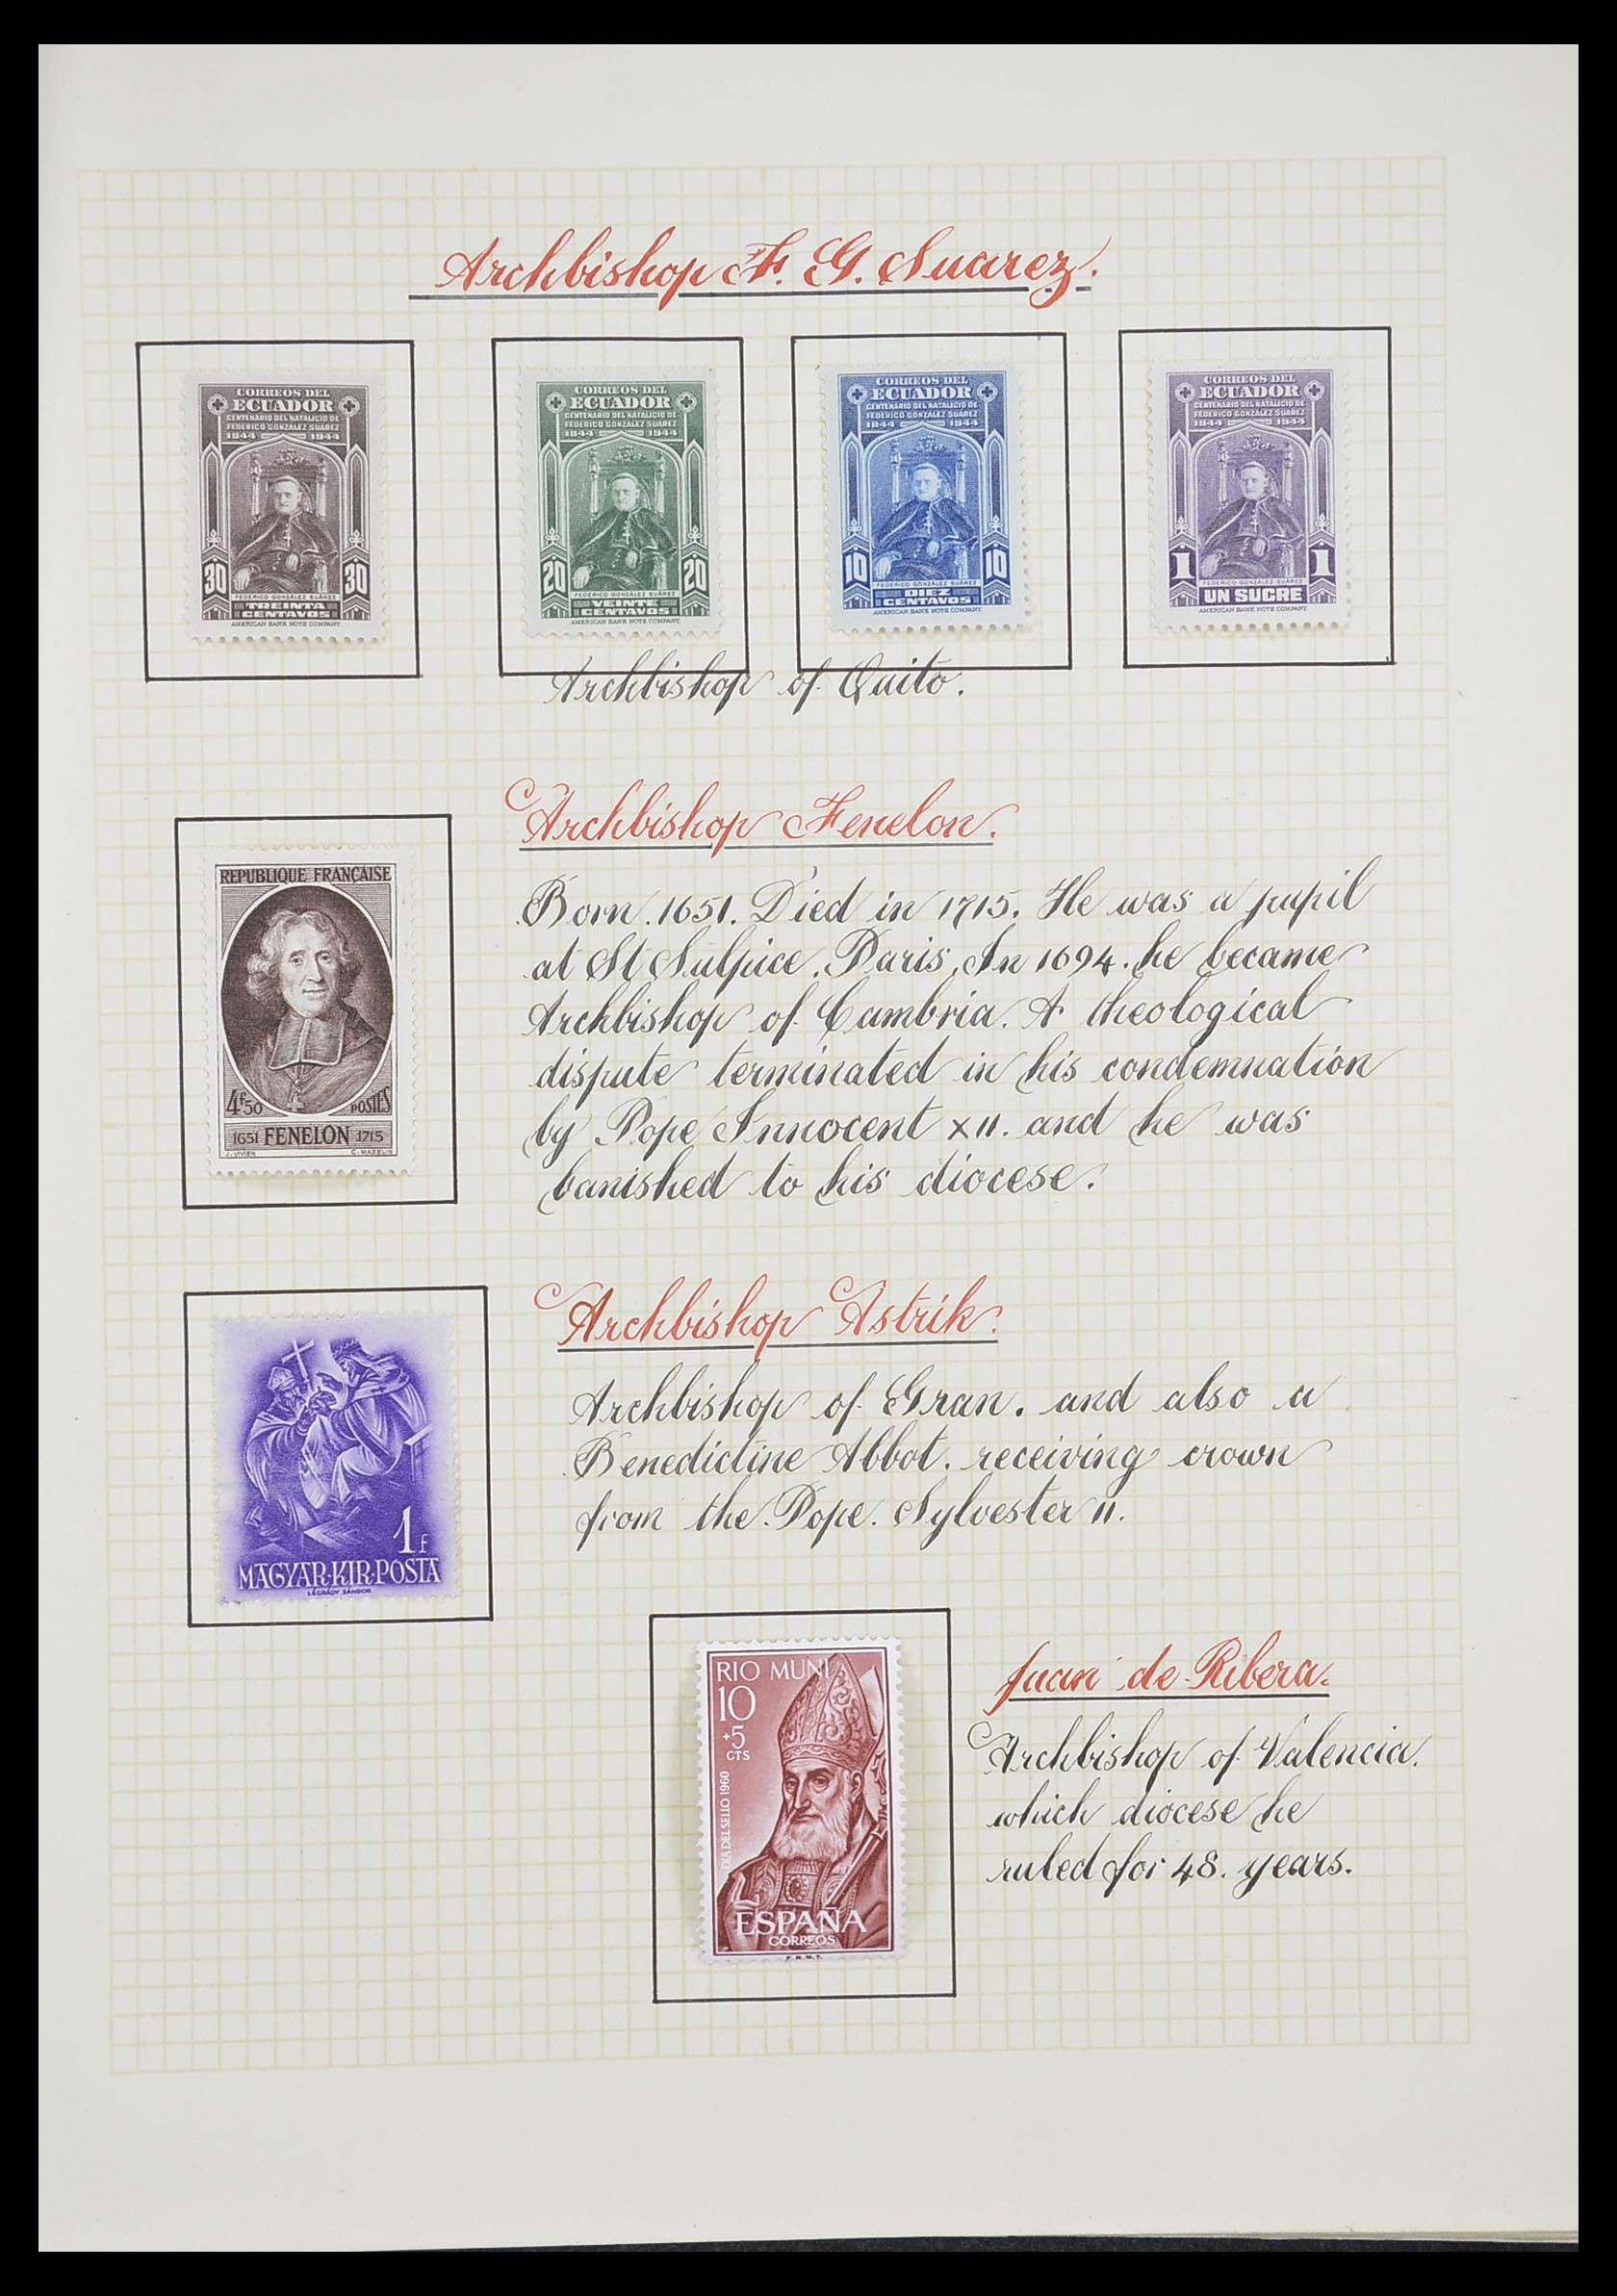 Archbishop F. G. Suarez.
CORREOS DEL
ECUADOR
CENTENARIO DEL NATALICIO DE
FEDERICO GONZÁLEZ SUÁREZ
1844 1944
30 30
FEDERICO GONZÁLEZ SUÁREZ
TREINTA
CENTAVOS
AMERICAN BANK NOTE COMPANY
CORREOS DEL
ECUADOR
CENTENARIO DEL NATALICIO DE
FEDERICO GONZÁLEZ SUÁREZ
1844 1944
20 20
FEDERICO GONZÁLEZ SUÁREZ
VEINTE
CENTAVOS
AMERICAN BANK NOTE COMPANY
CORREOS DEL
ECUADOR
CENTENARIO DEL NATALICIO DE
FEDERICO GONZÁLEZ SUÁREZ
1844 1944
10 10
FEDERICO GONZÁLEZ SUÁREZ
DIEZ
CENTAVOS
AMERICAN BANK NOTE COMPANY
CORREOS DEL
ECUADOR
CENTENARIO DEL NATALICIO DE
FEDERICO GONZÁLEZ SUÁREZ
1844 1944
1 1
FEDERICO GONZÁLEZ SUÁREZ
UN SUCRE
AMERICAN BANK NOTE COMPANY
Archbishop of Quito.
REPUBLIQUE FRANÇAISE
4F50 POSTES
1651 FENELON 1715
J. VIVIEN C. MAZELIN
Archbishop Fenelon.
Born. 1651. Died in 1715. He was a pupil
at St Sulpice. Paris, In 1694. he became
Archbishop of Cambria. A theological
dispute terminated in his condemnation
by Pope Innocent XII. and he was
banished to his diocese.
1f
MAGYAR·KIR·POSTA
LÉGRÁDY SÁNDOR
Archbishop Astrik.
Archbishop of Gran. and also a
Benedictine Abbot. receiving crown
from the Pope. Sylvester II.
RIO MUNI
10
+5
CTS
DIA DEL SELLO 1960
ESPAÑA
CORREOS
F.N.M.T.
Juan de Ribera.
Archbishop of Valencia.
which diocese he
ruled for 48. years.